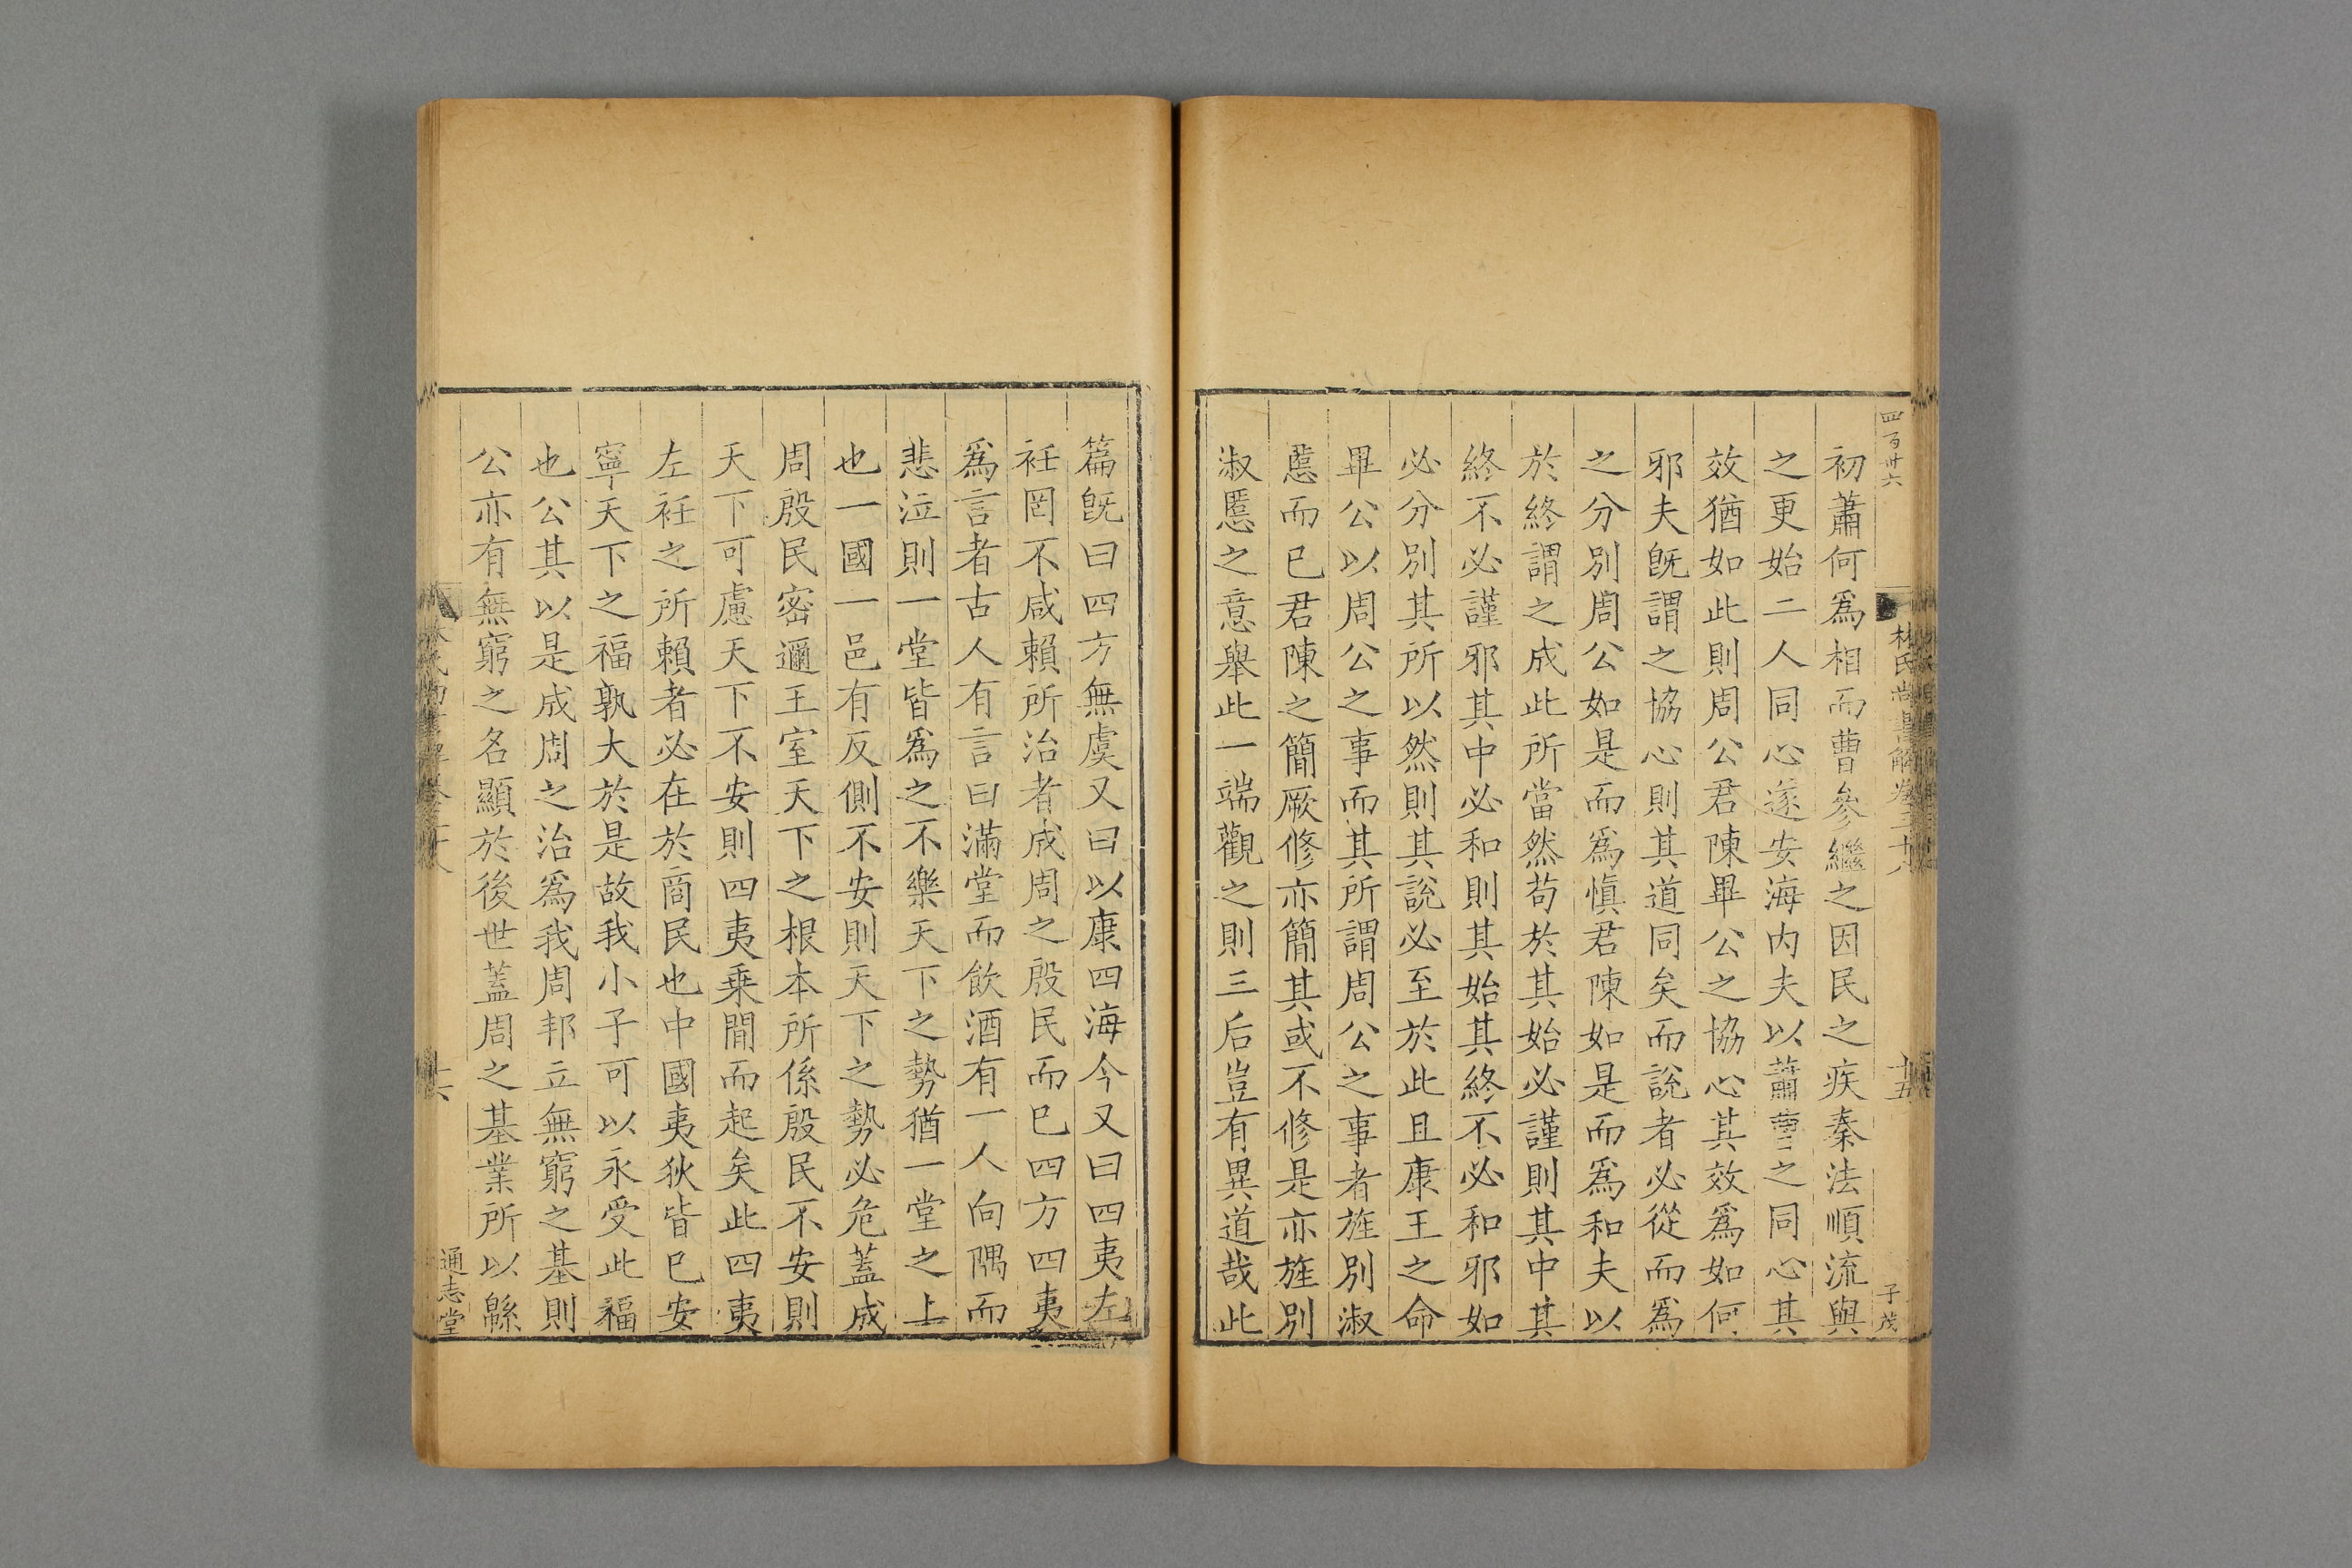 四百卅六
林氏尚書解卷三十八
十五
子茂
初蕭何爲相而曹參繼之因民之疾秦法順流與
之更始二人同心遂安海内夫以蕭曹之同心其
效猶如此則周公君陳畢公之協心其效爲如何
邪夫旣謂之協心則其道同矣而說者必從而爲
之分別周公如是而爲愼君陳如是而爲和夫以
於終謂之成此所當然苟於其始必謹則其中其
終不必謹邪其中必和則其始其終不必和邪如
必分別其所以然則其說必至於此且康王之命
畢公以周公之事而其所謂周公之事者旌別淑
慝而已君陳之簡厥修亦簡其或不修是亦旌別
淑慝之意舉此一端觀之則三后豈有異道哉此
篇旣曰四方無虞又曰以康四海今又曰四夷左
衽罔不咸賴所治者成周之殷民而已四方四夷
爲言者古人有言曰滿堂而飲酒有一人向隅而
悲泣則一堂皆爲之不樂天下之勢猶一堂之上
也一國一邑有反側不安則天下之勢必危蓋成
周殷民密邇王室天下之根本所係殷民不安則
天下可慮天下不安則四夷乗間而起矣此四夷
左衽之所賴者必在於商民也中國夷狄皆已安
寧天下之福孰大於是故我小子可以永受此福
也公其以是成周之治爲我周邦立無窮之基則
公亦有無窮之名顯於後世蓋周之基業所以緜
十六
通志堂